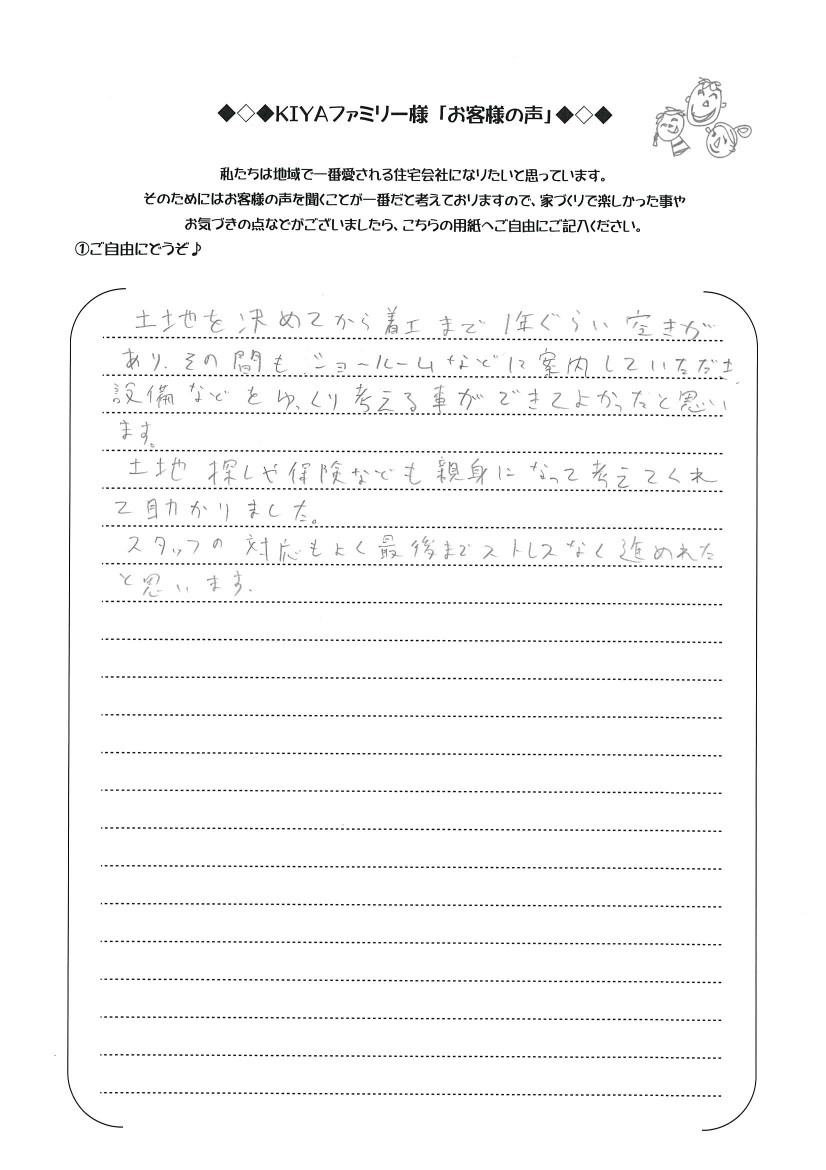 ◆◇◆KIYAファミリー様「お客様の声」◆◇◆
私たちは地域で一番愛される住宅会社になりたいと思っています。
そのためにはお客様の声を聞くことが一番だと考えておりますので、家づくりで楽しかった事や
お気づきの点などがございましたら、こちらの用紙へご自由にご記入ください。
①ご自由にどうぞ♪
土地を決めてから着工まで1年ぐらい空きが
あり、その間も、ショールームなどに案内していただき、
設備などをゆっくり考える事ができてよかったと思い
ます。
土地探しや保険なども親身になって考えてくれ
て助かりました。
スタッフの対応もよく最後までストレスなく進めれた
と思います。